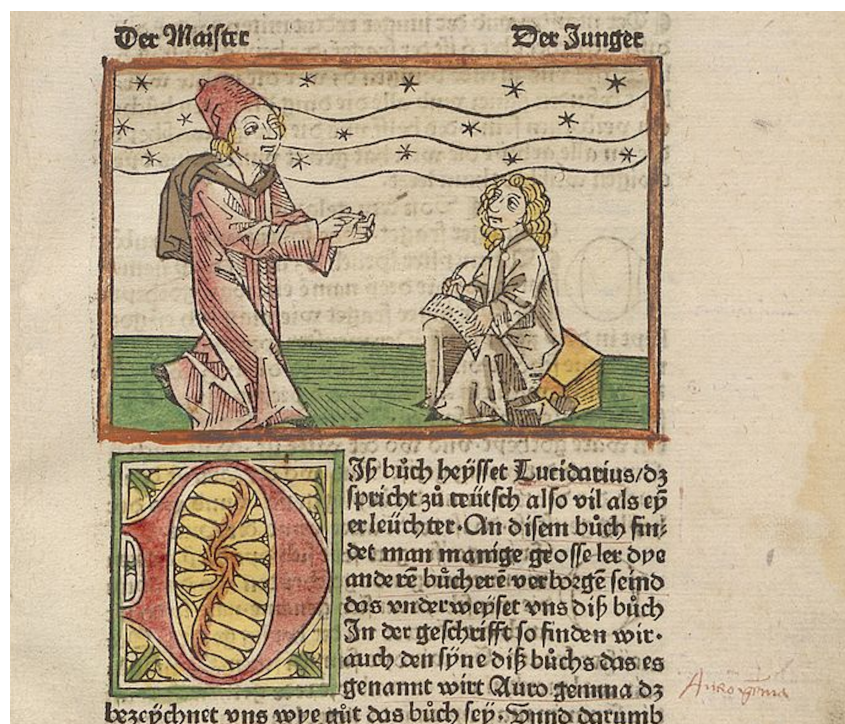 Der Maister Der Junger
Diß bůch heÿsset Lucidarius/dz
spricht zů teütsch also vil als eÿ̄
erleüchter·An disem bůch fin⸗
det man manige grosse ler dye
anderē bůcherē verborgē seind
das vnderweÿset vns diß bůch
In der geschrifft so finden wir·
auch den sÿne diß bůchs das es
genannt wirt Auro gemma dz
Auro gema
bezeÿchnet vns wye gůt das bůch seÿ·Vnnd darumb